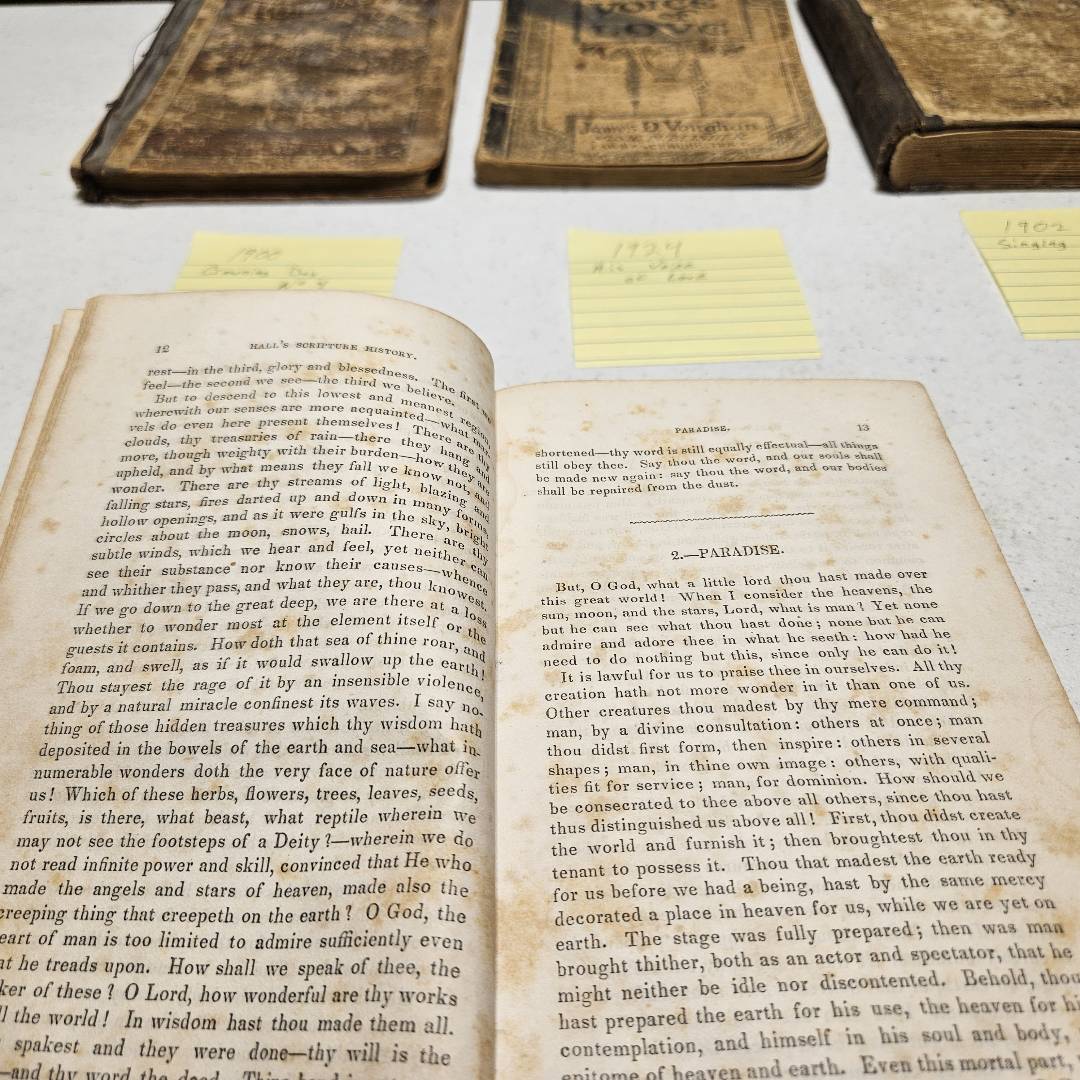 VOICE of
LOVE
James D. Vaughan
1924
His Voice
of Love
1902
Singing
12 HALL'S SCRIPTURE HISTORY.
rest—in the third, glory and blessedness. The first we
feel—the second we see—the third we believe.
But to descend to this lowest and meanest region,
wherewith our senses are more acquainted—what mar-
vels do even here present themselves! There are thy
clouds, thy treasuries of rain—there they hang and
move, though weighty with their burden—how they are
upheld, and by what means they fall we know not, and
wonder. There are thy streams of light, blazing and
falling stars, fires darted up and down in many forms,
hollow openings, and as it were gulfs in the sky, bright
circles about the moon, snows, hail. There are thy
subtle winds, which we hear and feel, yet neither can
see their substance nor know their causes—whence
and whither they pass, and what they are, thou knowest.
If we go down to the great deep, we are there at a loss
whether to wonder most at the element itself or the
guests it contains. How doth that sea of thine roar, and
foam, and swell, as if it would swallow up the earth!
Thou stayest the rage of it by an insensible violence,
and by a natural miracle confinest its waves. I say no-
thing of those hidden treasures which thy wisdom hath
deposited in the bowels of the earth and sea—what in-
numerable wonders doth the very face of nature offer
us! Which of these herbs, flowers, trees, leaves, seeds,
fruits, is there, what beast, what reptile wherein we
may not see the footsteps of a Deity?—wherein we do
not read infinite power and skill, convinced that He who
made the angels and stars of heaven, made also the
creeping thing that creepeth on the earth? O God, the
eart of man is too limited to admire sufficiently even
at he treads upon. How shall we speak of thee, the
ker of these? O Lord, how wonderful are thy works
ll the world! In wisdom hast thou made them all.
spakest and they were done—thy will is the
—and thy word the deed.
PARADISE. 13
shortened—thy word is still equally effectual—all things
still obey thee. Say thou the word, and our souls shall
be made new again: say thou the word, and our bodies
shall be repaired from the dust.
2.—PARADISE.
But, O God, what a little lord thou hast made over
this great world! When I consider the heavens, the
sun, moon, and the stars, Lord, what is man? Yet none
but he can see what thou hast done; none but he can
admire and adore thee in what he seeth: how had he
need to do nothing but this, since only he can do it!
It is lawful for us to praise thee in ourselves. All thy
creation hath not more wonder in it than one of us.
Other creatures thou madest by thy mere command;
man, by a divine consultation: others at once; man
thou didst first form, then inspire: others in several
shapes; man, in thine own image: others, with quali-
ties fit for service; man, for dominion. How should we
be consecrated to thee above all others, since thou hast
thus distinguished us above all! First, thou didst create
the world and furnish it; then broughtest thou in thy
tenant to possess it. Thou that madest the earth ready
for us before we had a being, hast by the same mercy
decorated a place in heaven for us, while we are yet on
earth. The stage was fully prepared; then was man
brought thither, both as an actor and spectator, that he
might neither be idle nor discontented. Behold, thou
hast prepared the earth for his use, the heaven for hi
contemplation, and himself in his soul and body,
epitome of heaven and earth. Even this mortal part,